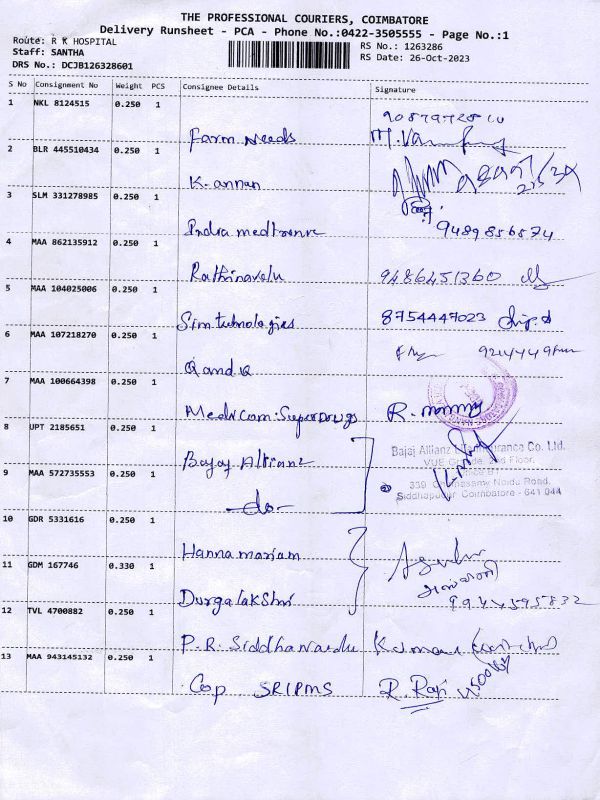 THE PROFESSIONAL COURIERS, COIMBATORE
Delivery Runsheet - PCA - Phone No.:0422-3505555 - Page No.:1
Route: R K HOSPITAL
Staff: SANTHA
DRS No.: DCJB126328601
RS No.: 1263286
RS Date: 26-Oct-2023
S No Consignment No Weight PCS Consignee Details Signature
1 NKL 8124515 0.250 1
Farm Needs
2 BLR 445510434 0.250 1
K. annan
3 SLM 331278985 0.250 1
India medtronic 9489856574
4 MAA 862135912 0.250 1
Rathinavelu 9486451360
5 MAA 104025006 0.250 1
Sim technologies 8754447023
6 MAA 107218270 0.250 1
Q and Q
7 MAA 100664398 0.250 1
Medicom Superdrugs R.
8 UPT 2185651 0.250 1
Bajaj Allianz
Bajaj Allianz Life Insurance Co. Ltd.
2nd Floor,
9 MAA 572735553 0.250 1
-do-
339 Chinnasamy Naidu Road,
Siddhapudur Coimbatore - 641 044
10 GDR 5331616 0.250 1
Hanna mariam
11 GDM 167746 0.330 1
Durgalakshmi
9944595832
12 TVL 4700882 0.250 1
P.R. Siddhanaidu Kumar
13 MAA 943145132 0.250 1
Cop SRIPMS R Raji